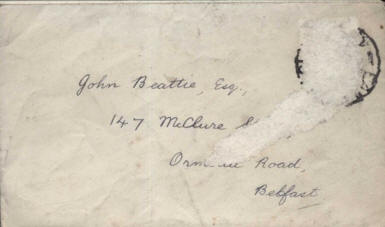 John Beattie, Esq.,
147 McClure
Road,
Belfast